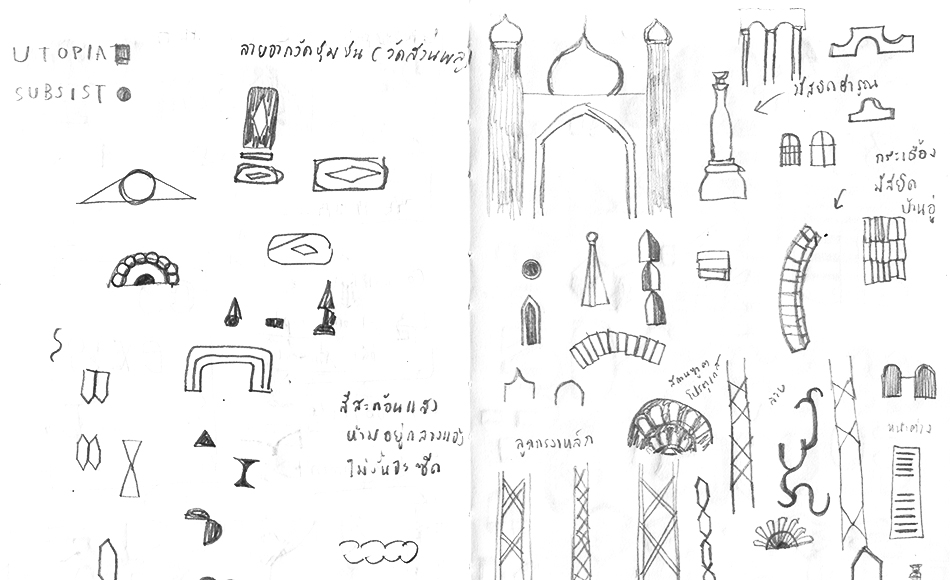 UTOPIA
SUBSIST
ลายจากวัดชุมชน (วัดสวนพลู)
สีสะท้อนแสง
ห้ามอยู่กลางแจ้ง
ไม่งั้นจะซีด
มัสยิดฮารูณ
กระเบื้อง
มัสยิด
บ้านอู่
สถานทูต
โปรตุเกส
ลูกกรงเหล็ก
ลาย
หน้าต่าง